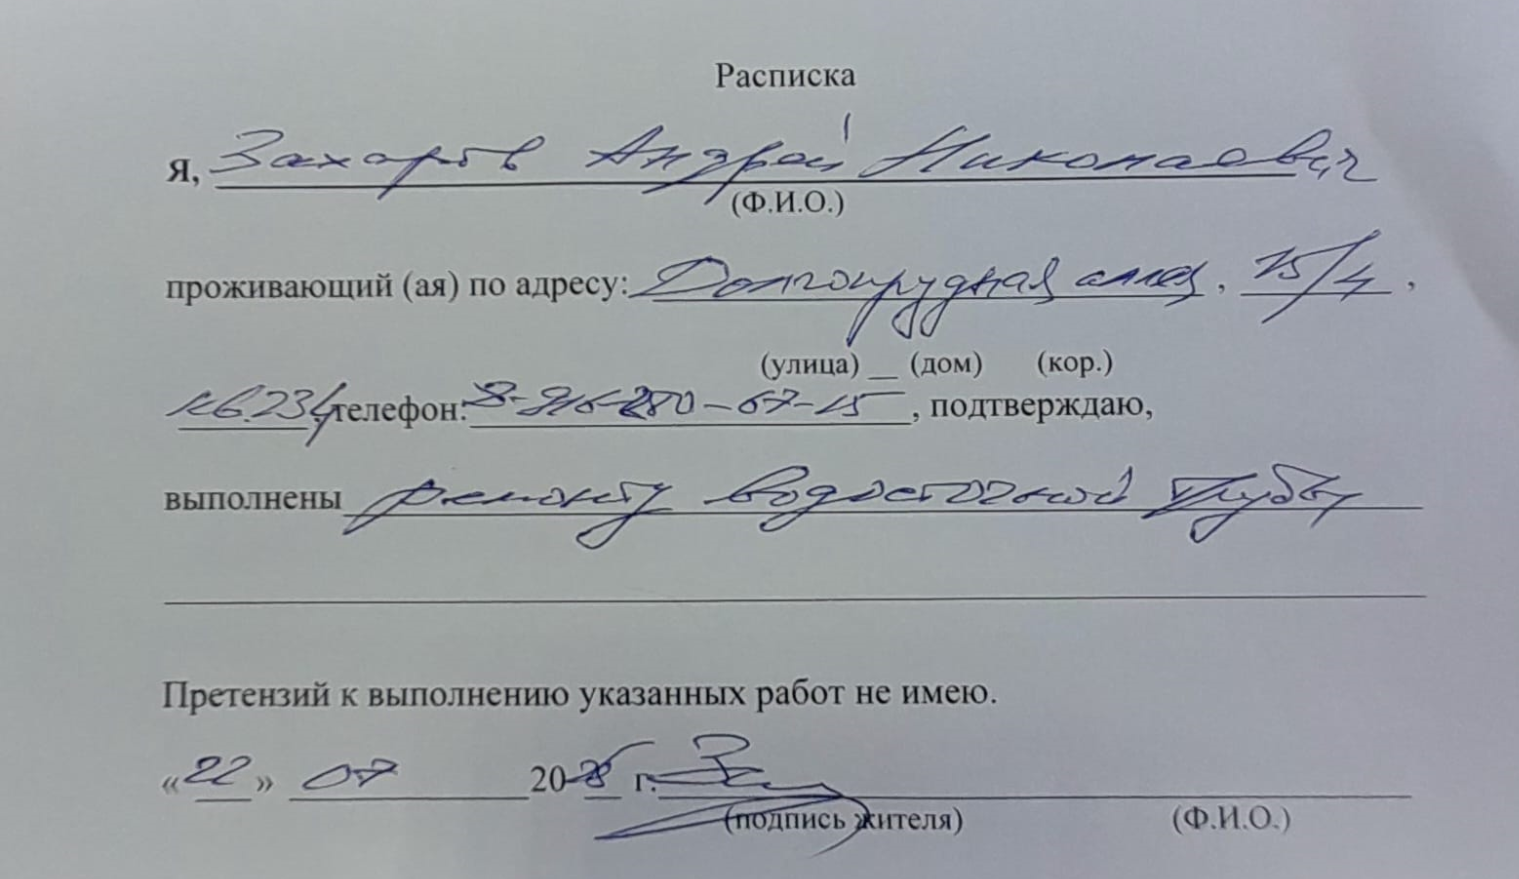 Расписка
Я, Захаров Андрей Николаевич
(Ф.И.О.)
проживающий (ая) по адресу: Долгопрудная аллея, 15/4,
(улица) __ (дом) (кор.)
кв. 234, телефон: 8-916-280-67-15, подтверждаю,
выполнены ремонту водосточной трубы
Претензий к выполнению указанных работ не имею.
«22» 07 20 г.
(подпись жителя) (Ф.И.О.)